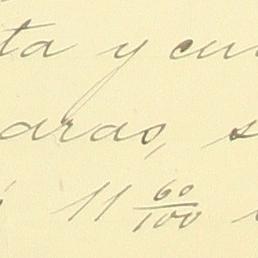 ta y cua
aras, s
11 60/100